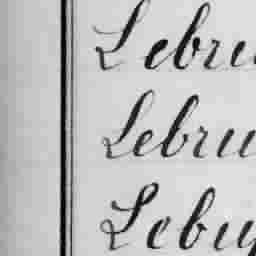 Lebru
Lebru
Lebuy